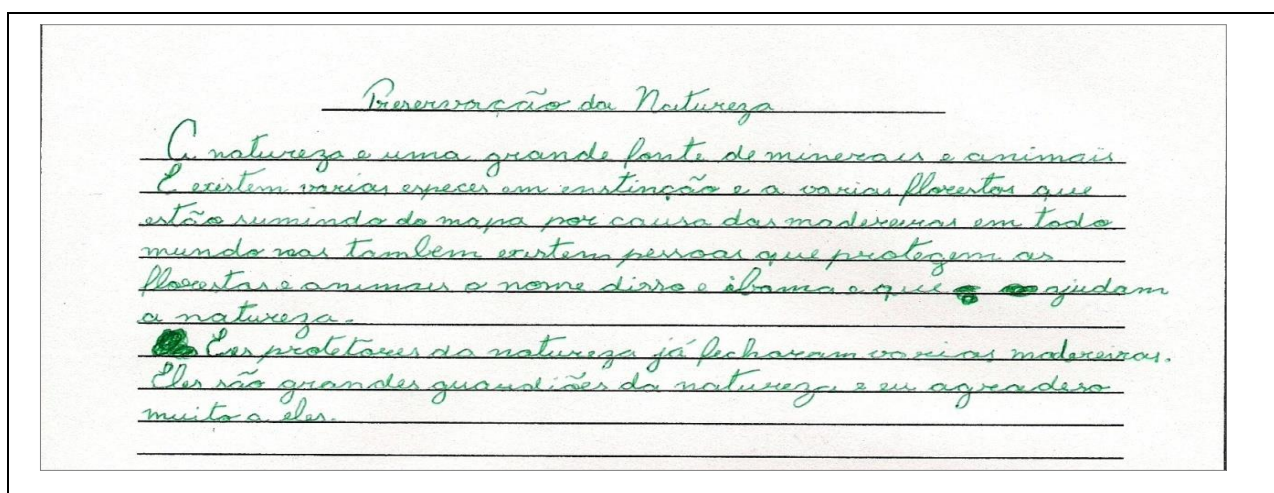 Preservação da Natureza
A natureza e uma grande fonte de minerais e animais
E existem varias especes em enstinção e a varias florestas que
estão sumindo do mapa por causa das madereiras em todo
mundo mas tambem existem pessoas que protegem as
florestas e animais o nome disso e ibama e que ajudam
a natureza.
Ees protetores da natureza já fecharam varias madereiras.
Eles são grandes guardiões da natureza e eu agradeso
muito a eles.